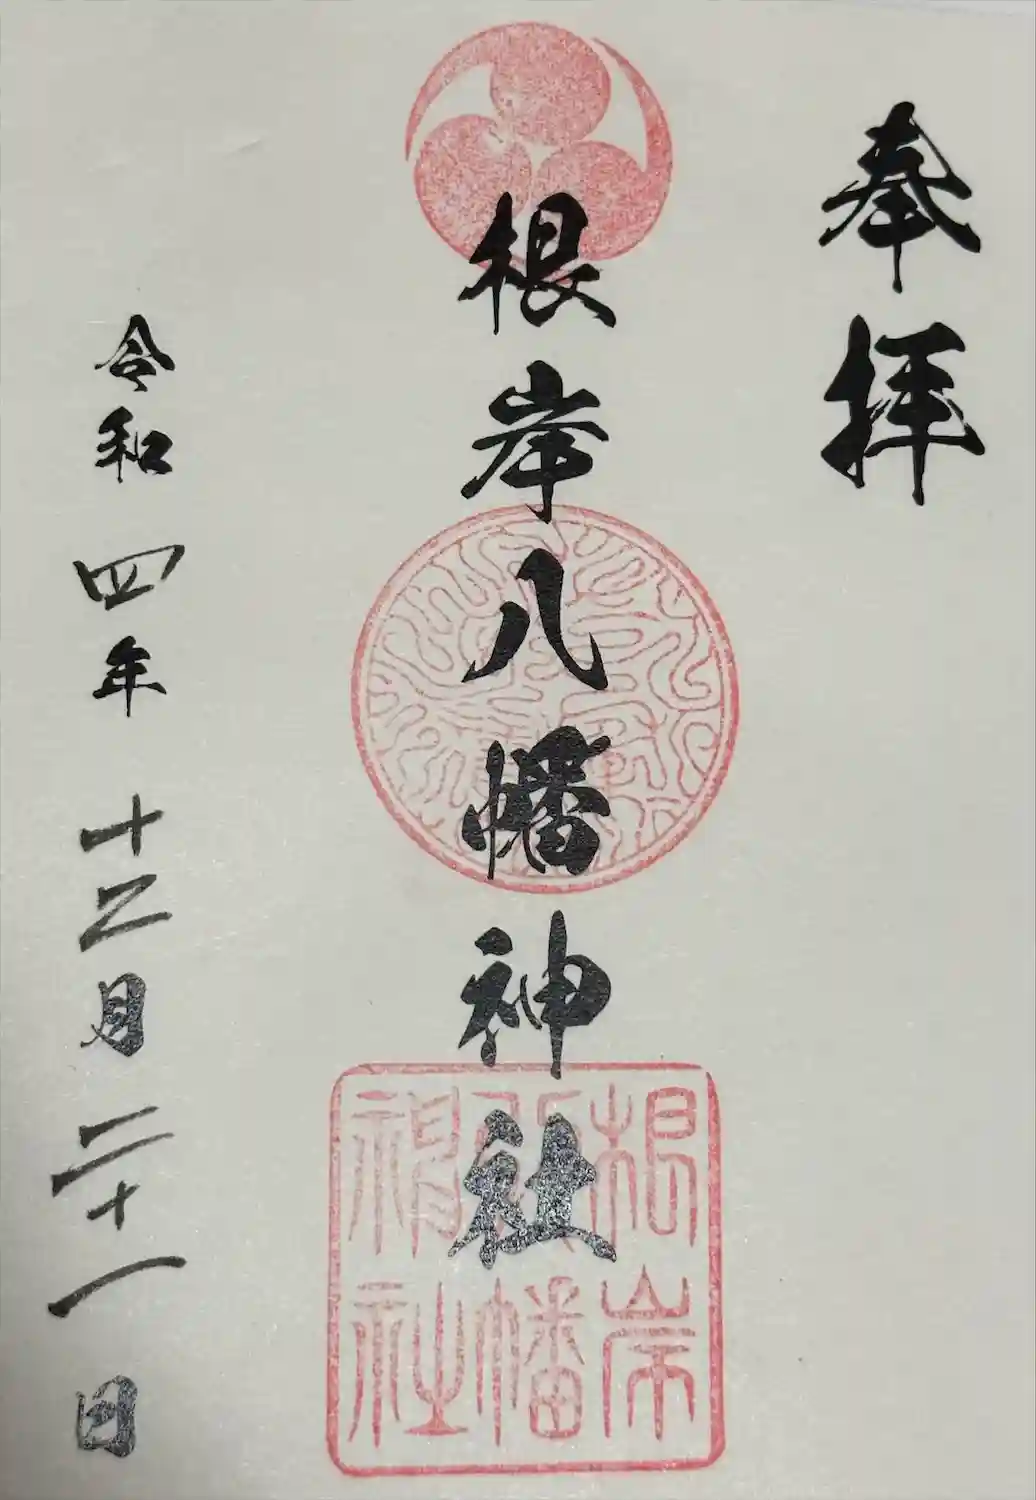 奉拝
根岸八幡神社
令和四年十二月二十一日
根岸
八幡
神社